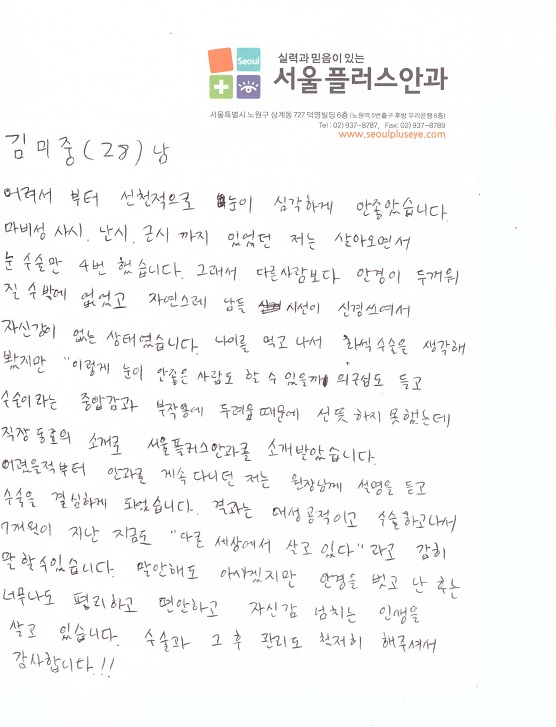 Seoul
실력과 믿음이 있는
서울플러스안과
서울특별시 노원구 상계동 727 덕영빌딩 6층 (노원역 5번출구 후방 우리은행 6층)
Tel : 02) 937-8787, Fax: 02) 937-8789
www.seoulpluseye.com
김미중 (28) 남
어려서 부터 선천적으로 눈이 심각하게 안좋았습니다.
마비성 사시, 난시, 근시 까지 있었던 저는 살아오면서
눈 수술만 4번 했습니다. 그래서 다른사람보다 안경이 두꺼워
질 수 밖에 없었고 자연스레 남들 시선이 신경쓰여서
자신감이 없는 상태였습니다. 나이를 먹고 나서 라섹수술을 생각해
봤지만 "이렇게 눈이 안좋은 사람도 할 수 있을까" 의구심도 들고
수술이라는 중압감과 부작용에 두려움 때문에 선뜻 하지 못했는데
직장 동료의 소개로 서울플러스안과를 소개받았습니다.
어렸을적부터 안과를 계속 다니던 저는 원장님께 설명을 듣고
수술을 결심하게 되었습니다. 결과는 대성공적이고 수술하고나서
7개월이 지난 지금도 "다른 세상에서 살고 있다" 라고 감히
말할수있습니다. 말안해도 아시겠지만 안경을 벗고 난 후는
너무나도 편리하고 편안하고 자신감 넘치는 인생을
살고 있습니다. 수술과 그 후 관리도 철저히 해주셔서
감사합니다!!